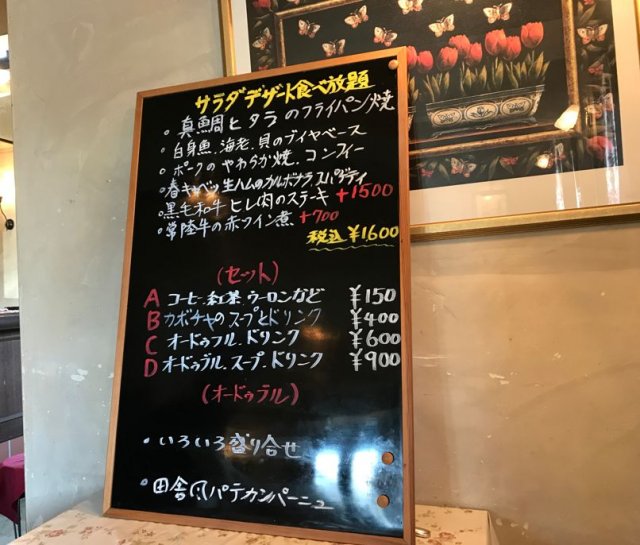 サラダデザート食べ放題
・真鯛とタラのフライパン焼
・白身魚、海老、貝のブイヤベース
・ポークのやわらか焼、コンフィー
・春キャベツ生ハムのカルボナーラスパゲティ
・黒毛和牛ヒレ肉のステーキ +1500
・常陸牛の赤ワイン煮 +700
税込¥1600
(セット)
A コーヒー、紅茶、ウーロンなど ¥150
B カボチャのスープとドリンク ¥400
C オードゥブル、ドリンク ¥600
D オードゥブル、スープ、ドリンク ¥900
(オードゥブル)
・いろいろ盛り合せ
・田舎風パテカンパーニュ